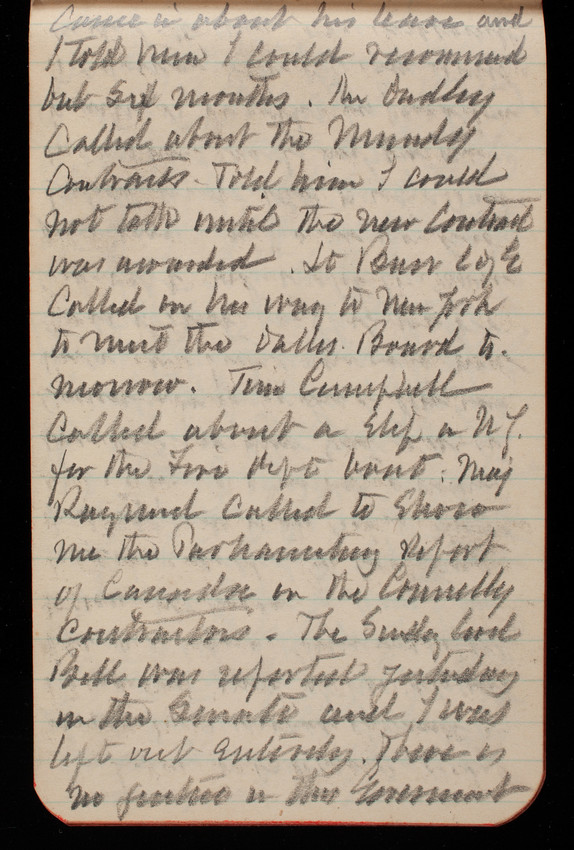 Came in about his leave and
I told him I could recommend
but six months. Mr Dudley
Called about the Munday
Contracts. Told him I could
not talk until the new Contract
was awarded. Lt Burr C of E
Called on his way to New York
to meet the Dalles Board to-
morrow. Tim Campbell
Called about a Slip a N.Y.
for the Fire dept boat. Maj
Raymond Called to Show
me the Parliamentary Report
of Canada on the Connelly
Contractors. The Sundry Civil
Bill was reported yesterday
in the Senate and I was
left out entirely. There is
no justice in this Government